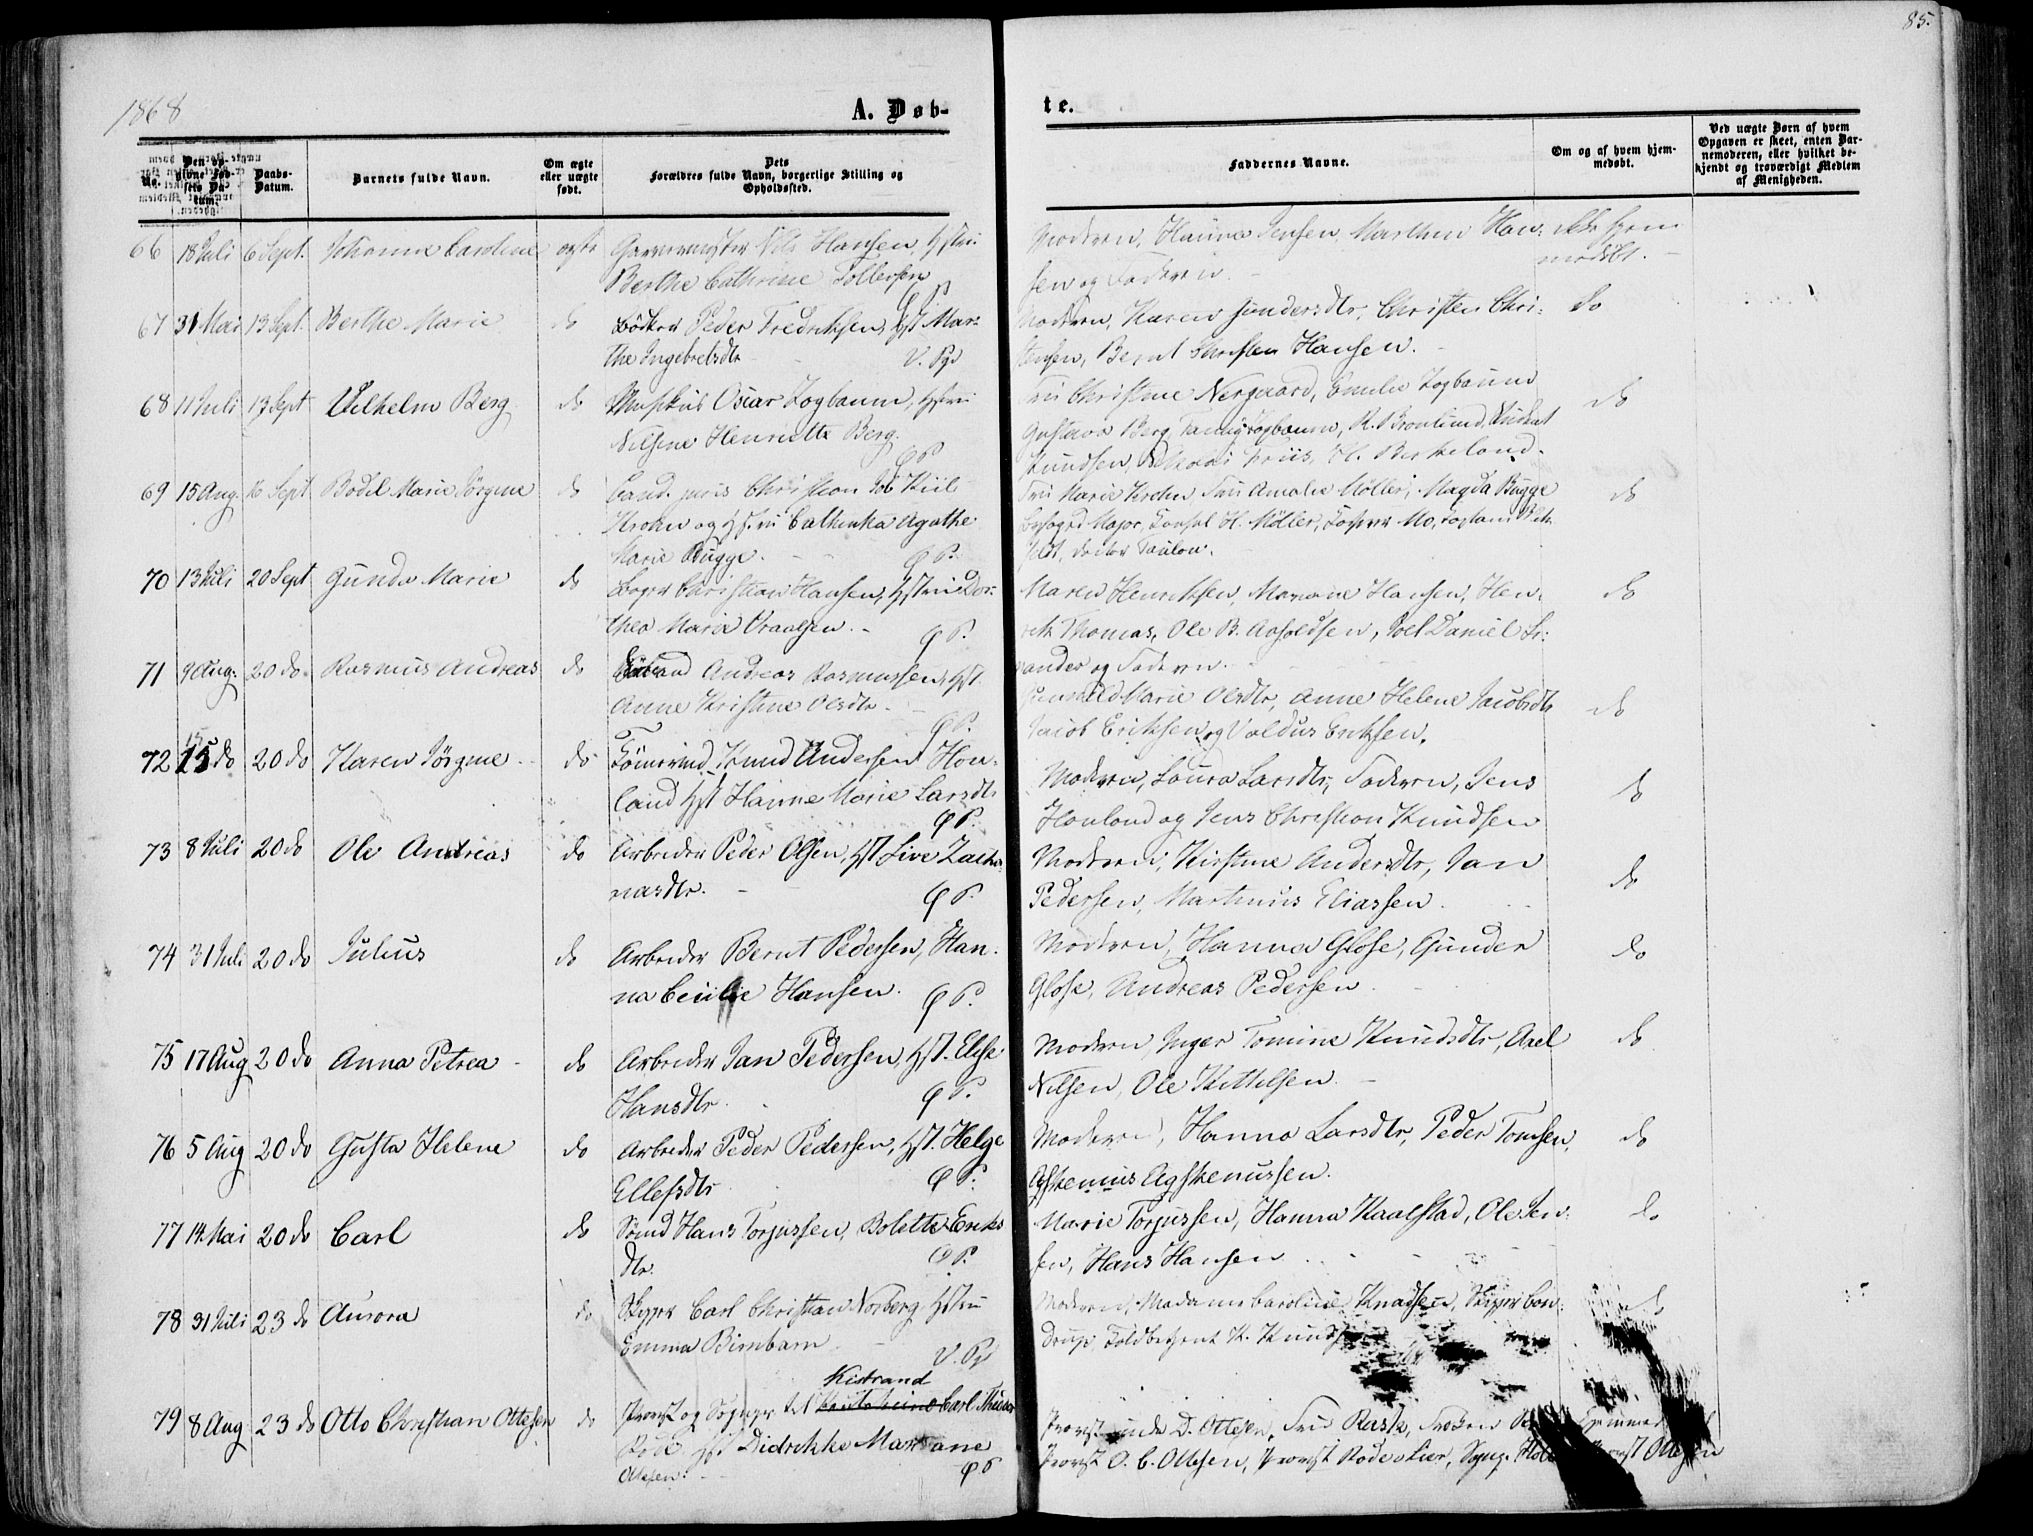 85.
1868
A. Døb-
te.
No.
Den op-
givne Fød-
sels Da-
tum.
Daabs-
Datum.
Barnets fulde Navn.
Om ægte
eller uægte
født.
Dets
Forældres fulde Navn, borgerlige Stilling og
Opholdssted.
Faddernes Navne.
Om og af hvem hjem-
medøbt.
Ved uægte Børn af hvem
Opgaven er skeet, enten Bar-
nemoderen, eller hvilket be-
kjendt og troværdigt Medlem
af Menigheden.
66 18 Juli 6 Sept. Johanne Caroline ægte Garvermester Nils Hansen, Hstrü
Berthe Cathrine Tollefsen
Moderen, Hanna Jensen, Marthin Han-
sen og Faderen. ikke hjem
medøbt.
67 31 Mai 13 Sept. Berthe Marie do Bödker Peder Fredriksen, Hst Mar-
the Ingebretsdtr V. Pgd
Moderen, Karen Gundersdtr, Christen Chri-
stensen, Bernt Christen Hansen. do
68 11 Juli 13 Sept Vilhelm Berg do Musikus Oscar Zogbaum, Hstrü
Nilsene Henriette Berg. PP
Frü Christine Nergaard, Emilie Zogbaum
Gustava Berg, Fanny Zogbaum, R. Brønlund, Student
Knudsen, Friis, H. Berkeland. do
69 15 Aug. 16 Sept Bodel Marie Jörgine do Cand. juris Christian Kiil
Krohn og Hstrü Cathinka Agathe
Marie Bugge. PP.
Frü Marie Krohn, Frü Amalie Möller, Magda Bugge
Major, Consul H. Möller, Mo,
Doctor Taulow. do
70 13 Juli 20 Sept Gunda Marie do Bager Christian Hansen, Hstrü Dor-
thea Maria Vraalsen. PP.
Maren Henriksen, Mariane Hansen, Hen-
rik Thomas, Ole B. Aasoldsen, Joel Daniel
og Faderen. do
71 9 Aug. 20 do. Rasmus Andreas do Andreas Rasmussen, Hst.
Anne Kristine Olsdtr. PP.
Gunhild Marie Olsdtr, Anne Helene Jacobsdtr
Jacob Eriksen og Valdus Eriksen. do
72 15 do 20 do Karen Jörgine do Tömmermd Knud Andersen Hou-
land Hst Hanne Marie Larsdtr PP.
Moderen, Laura Larsdtr, Faderen, Jens
Houland og Jens Christian Knudsen do
73 8 Juli 20 do Ole Andreas do Arbeider Peder Olsen, Hst Live Zacha-
riasdtr. PP.
Moderen, Kirstine Andersdtr, Jan
Pedersen, Martinius Eliassen. do
74 31 Juli 20 do Julius do Arbeider Bernt Pedersen, Han-
na Cecilie Hansen. PP.
Moderen, Hanna Glose, Gunder
Glose, Andreas Pedersen. do
75 17 Aug 20 do Anna Petrea do Arbeider Jan Pedersen, Hst. Elise
Hansdtr. PP.
Moderen, Inger Tomine Knudsdtr, Axel
Nilsen, Ole Kittelsen. do
76 5 Aug 20 do Gusta Helene do Arbeider Peder Pedersen, Hst. Helge
Ellefsdtr PP.
Moderen, Hanna Larsdtr, Peder Tomsen,
Aschenius Aschenussen. do
77 14 Mai 20 do Carl do Sömd Hans Torjussen, Bolette Eriks
dtr. PP.
Marie Torjussen, Hanna Kaalstad, Ole Jen-
sen, Hans Hansen do
78 31 Juli 23 do Aurora do Skipper Carl Christian Norberg, Hstrü
Emma Birnbarn V. Pgd
Moderen, Madame Caroline Knudsen, Skipper Con-
drup, Toldbetjent K. Knudsen do
79 8 Aug 23 do Otto Christian Ottesen do Provst og Sogneprst til Kistrand Carl Theodor
Rode Hst Didrikke Mariane
Ottesen. PP
Provstinde D. Ottesen, Frü Rask, Fröken
Provst O. C. Ottesen, Provst Rode Lier, Provst Ottesen